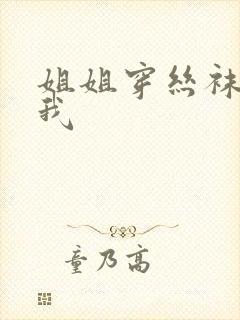 姐姐穿丝袜
我
童乃高